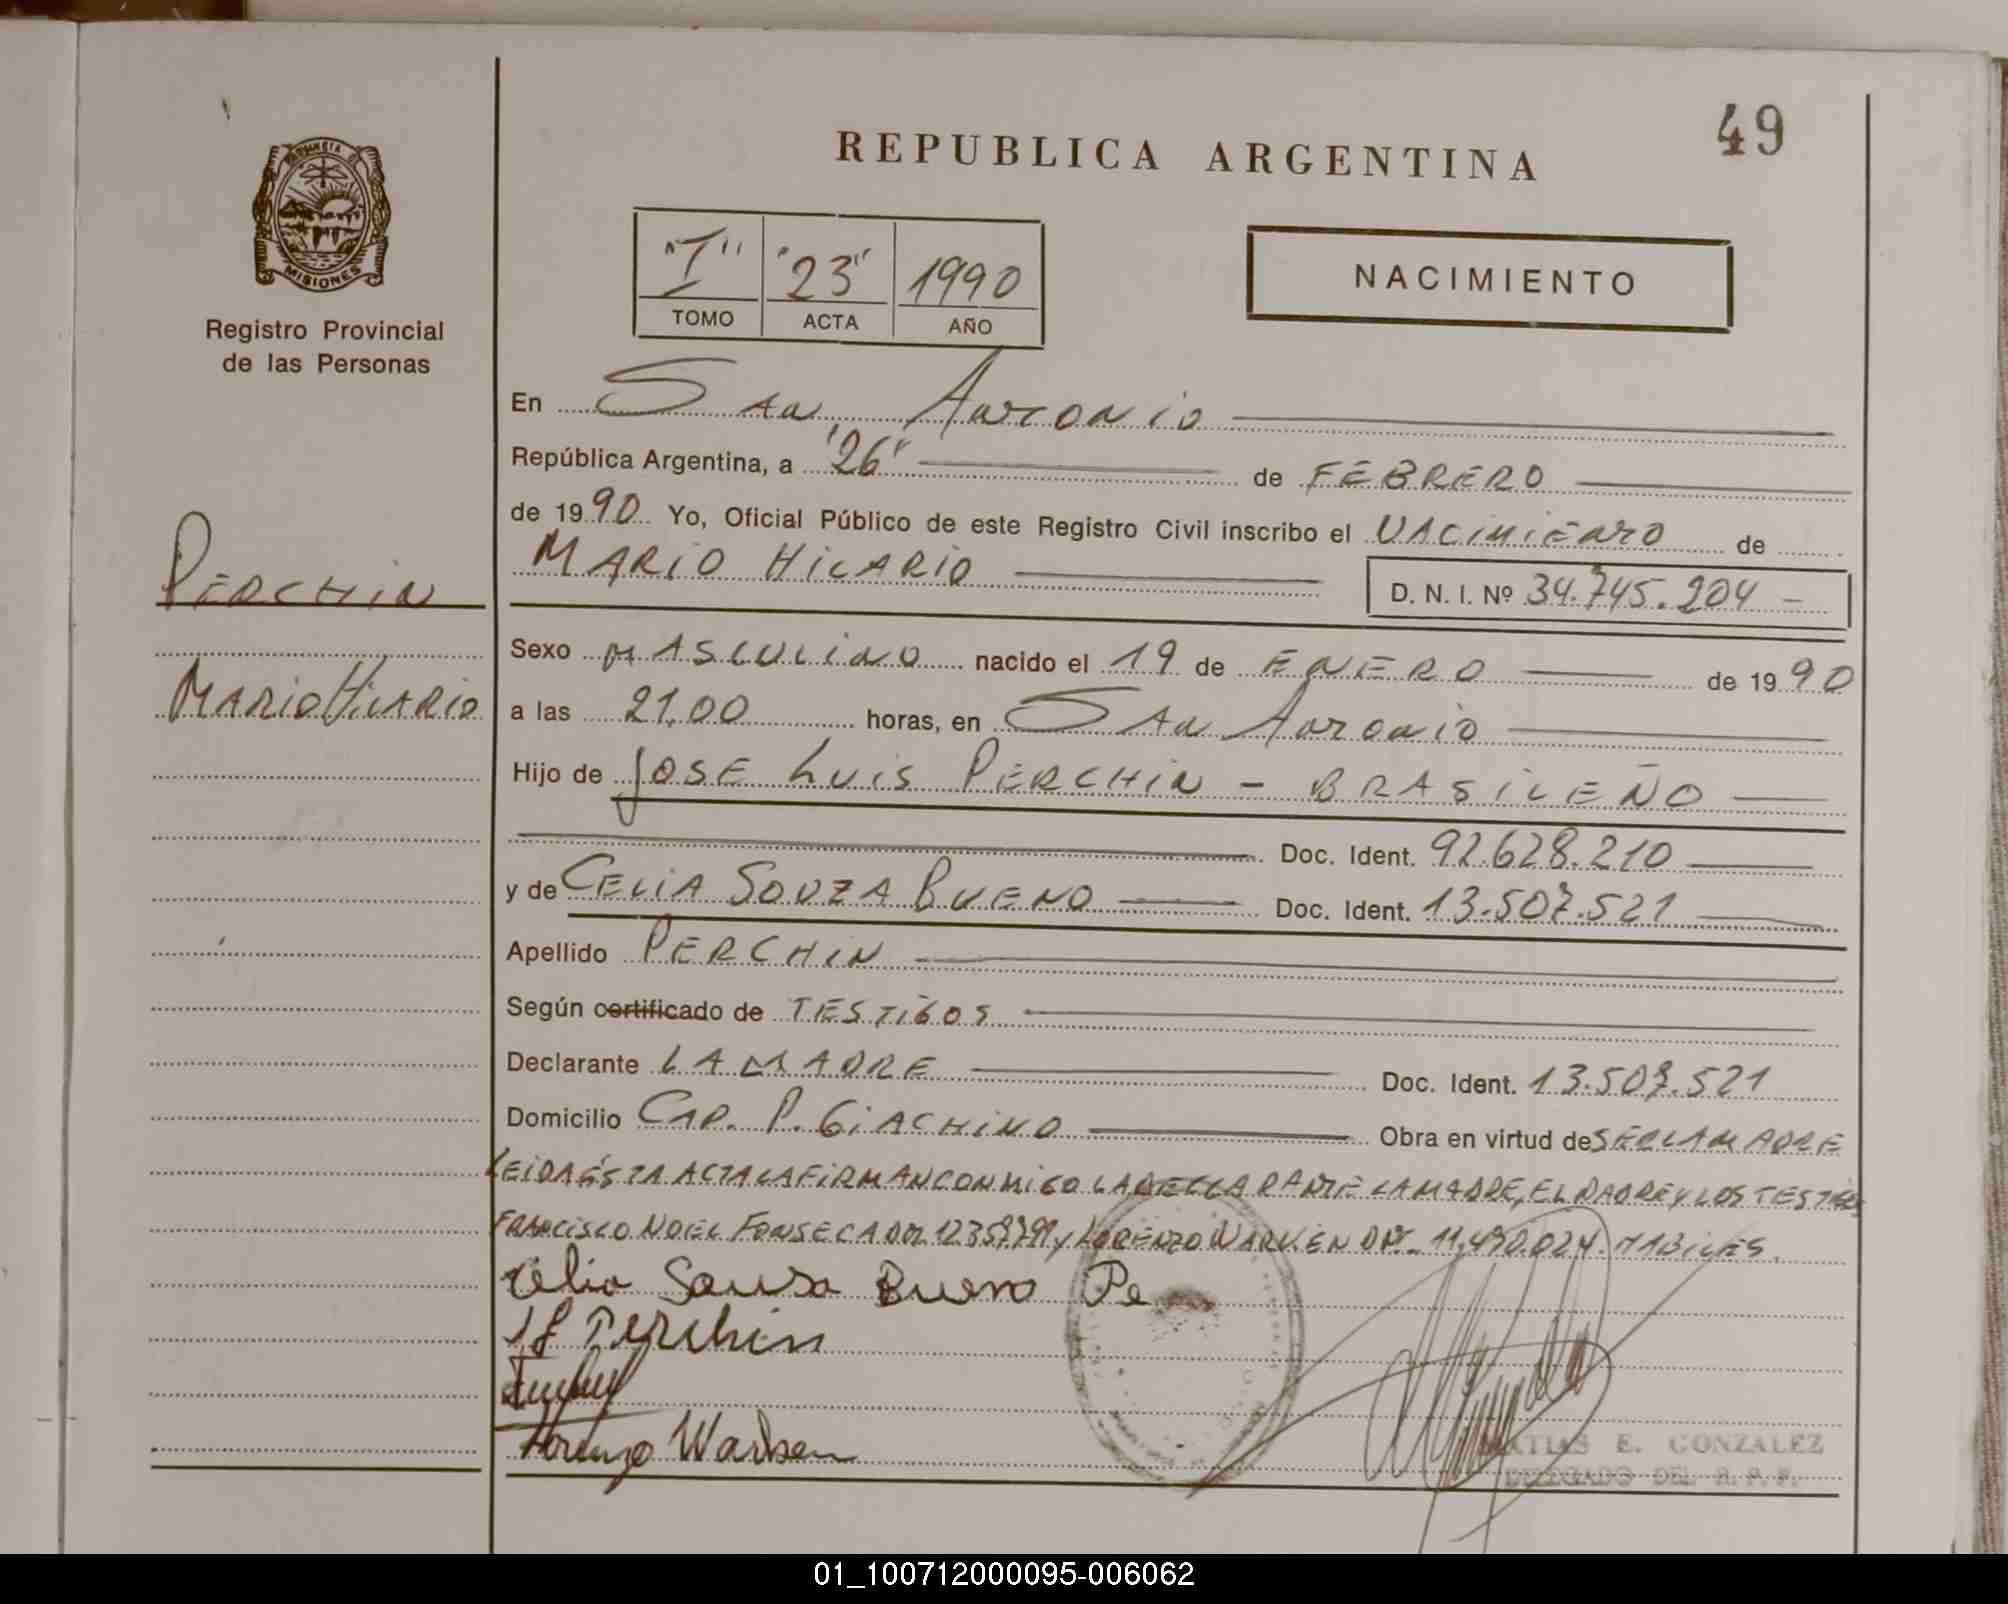 49
REPUBLICA ARGENTINA
PROVINCIA DE
MISIONES
Registro Provincial
de las Personas
"I" "23" 1990
TOMO ACTA AÑO
NACIMIENTO
En San Antonio
República Argentina, a "26" de FEBRERO
de 1990 Yo, Oficial Público de este Registro Civil inscribo el NACIMIENTO de
MARIO HILARIO
D. N. I. Nº 34.745.204 -
PERCHIN
MARIO HILARIO
Sexo MASCULINO nacido el 19 de ENERO de 1990
a las 21,00 horas, en San Antonio
Hijo de JOSE LUIS PERCHIN - BRASILEÑO
Doc. Ident. 92.628.210
y de CELIA SOUZA BUENO Doc. Ident. 13.507.521
Apellido PERCHIN
Según certificado de TESTIGOS
Declarante LA MADRE Doc. Ident. 13.507.521
Domicilio CAP. P. GIACHINO Obra en virtud de SER LA MADRE
LEIDA ÉSTA ACTA LA FIRMAN CONMIGO LA DECLARANTE LA MADRE, EL PADRE Y LOS TESTIGOS
FRANCISCO NOEL FONSECA y LORENZO WARKEN 11.490.024. HABILES.
Celia Sousa Bueno Pe
J L Perchin
Lorenzo Warken
MATIAS E. GONZALEZ
DELEGADO DEL R. P. P.
01_100712000095-006062